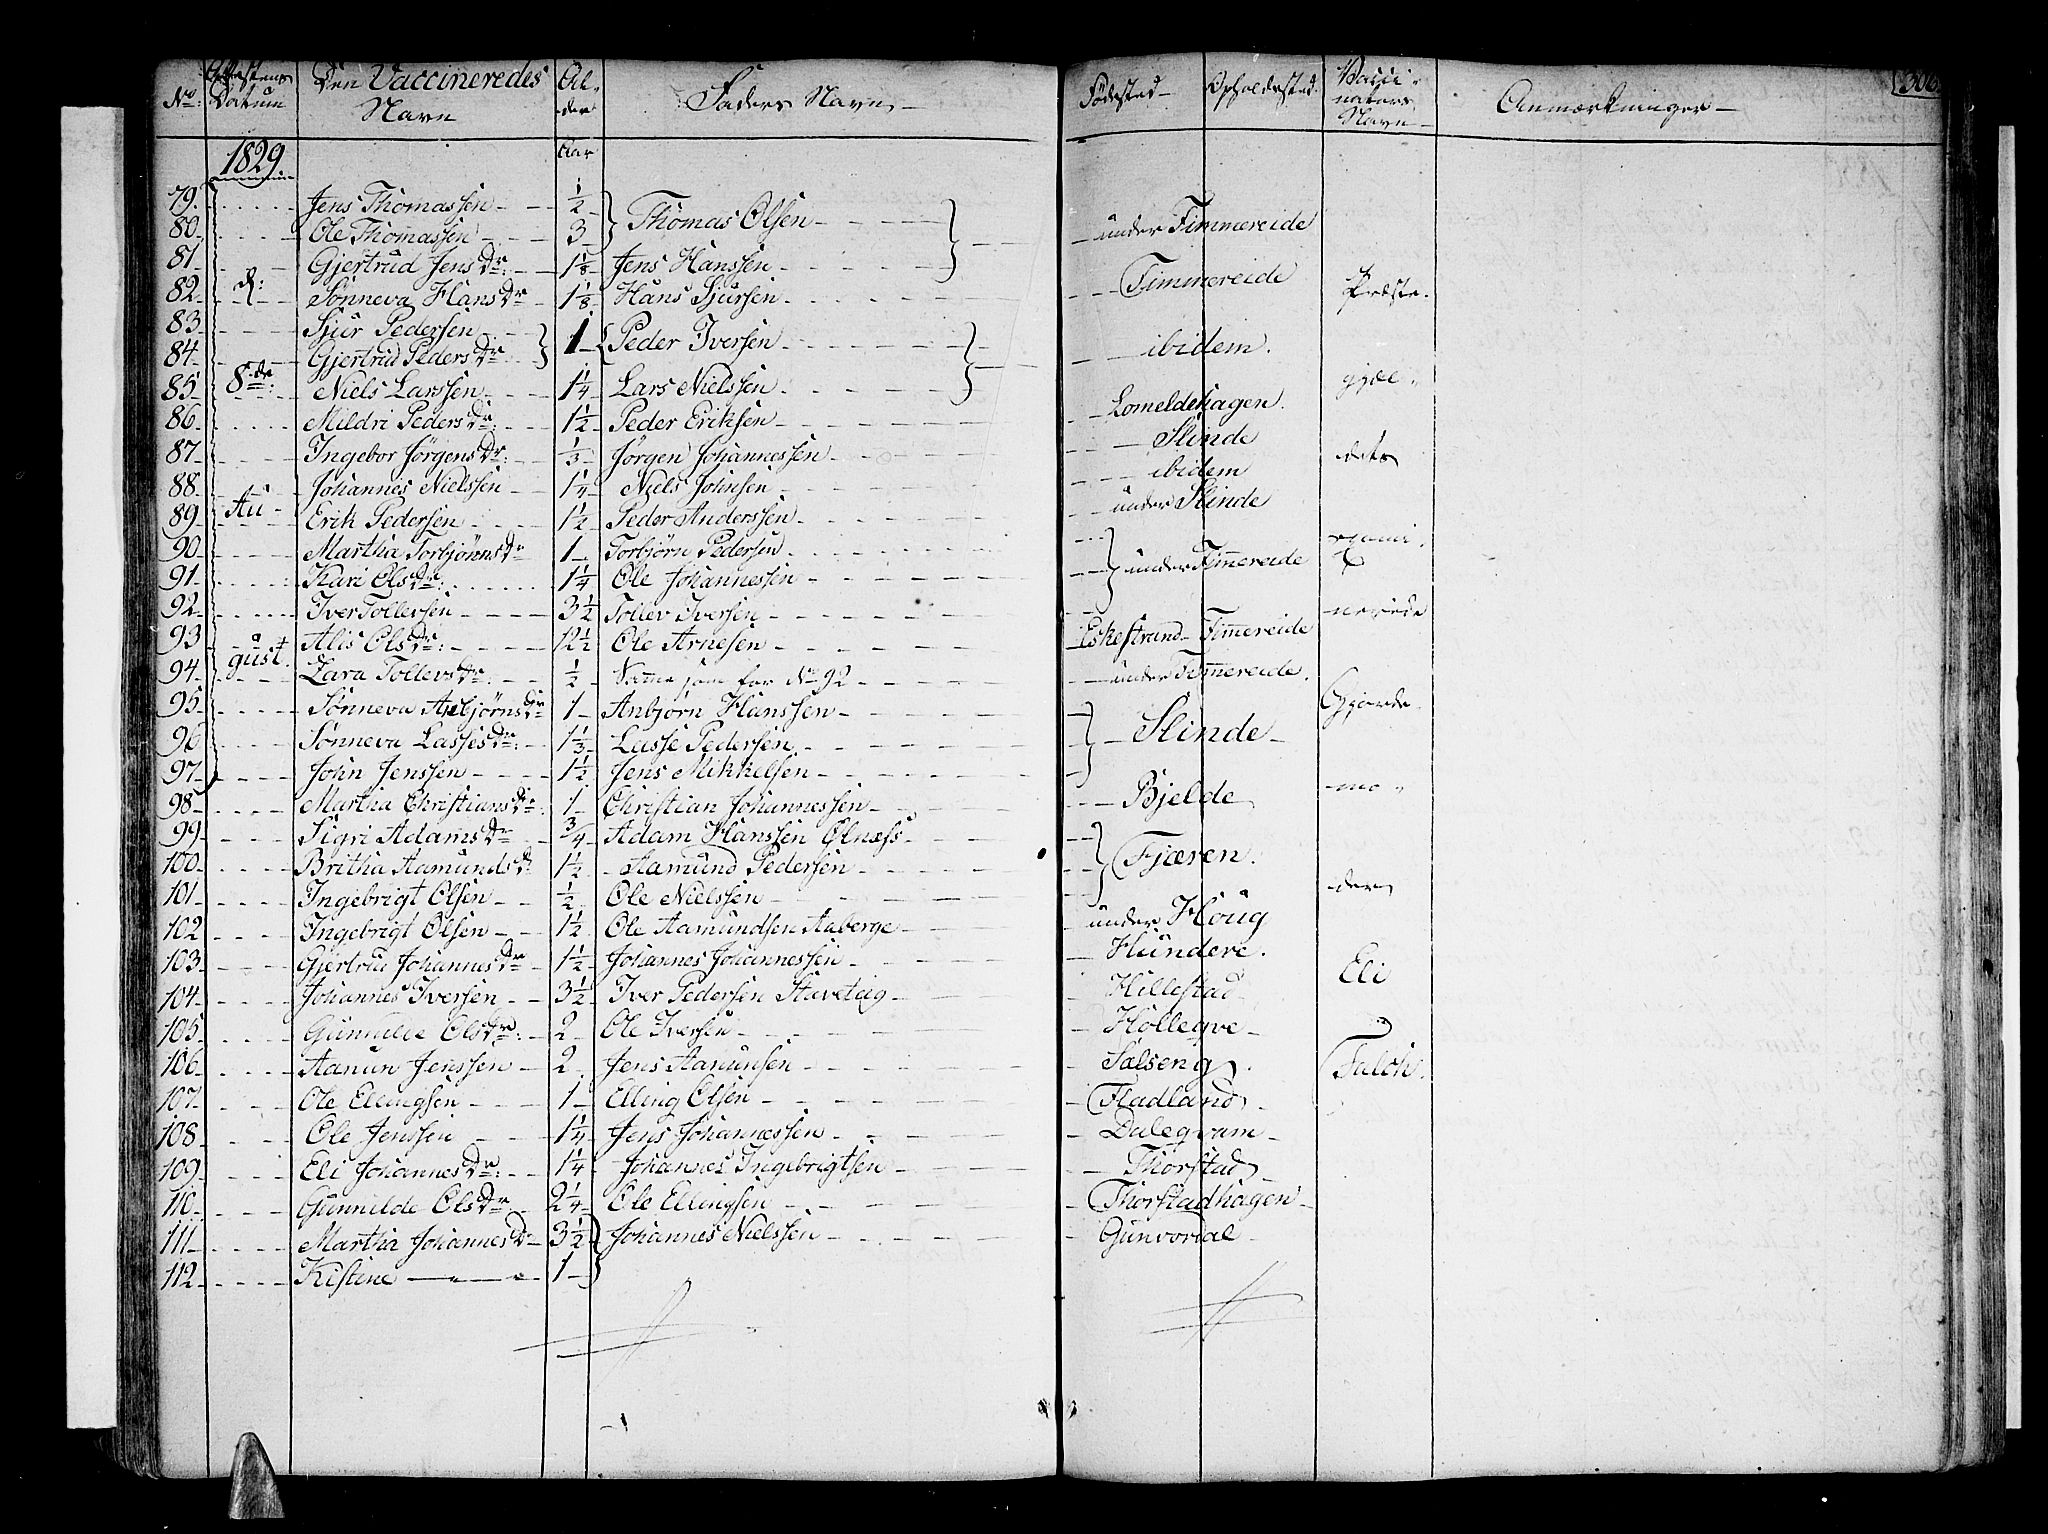 No: Attestens Datum Den Vaccineredes Navn Al-der Faders Navn Fødested Opholdssted Vacci-nators Navn Anmærkninger 306
1829 Aar
79. Jens Thomassen ½ Thomas Olsen under Timmereide
80. Ole Thomassen 3
81. Gjertrud Jens Dr: 1⅛ Jens Hanssen Timmereide
82. d: Sønneva Hans Dr 1⅛ Hans Sjursen Præste-
83. Sjur Pedersen 1 Peder Iversen ibidem.
84. Gjertrud Peders Dr
85. 8de: Niels Larssen 1¼ Lars Nielssen Lomeldehagen gjæl-
86. Mildri Peders Dr: 1½ Peder Eriksen Slinde
87. Ingebor Jørgens Dr: ⅓ Jørgen Johannessen ibidem dets
88. Johannes Nielssen 1¼ Niels Johnsen under Slinde
89. Au- Erik Pedersen 1½ Peder Anderssen
90. Martha Torbjørns Dr 1 Torbjørn Pedersen under Timmereide
91. Kari Ols Dr: 1¼ Ole Johannessen
92. Iver Tollevsen 3½ Tollev Iversen
93. Alis Ols Dr: 12½ Ole Arnesen Eskestrand Timmereide
94. gust. Zara Tollevs Dr: ½ Samme som for No 92 under Timmereide.
95. Sønneva Anbjørns Dr 1 Anbjørn Hanssen Slinde Gjorde-
96. Sønneva Lasses Dr: 1⅓ Lasse Pedersen
97. John Jenssen 1½ Jens Mikkelsen
98. Martha Christians Dr: 1 Christian Johannessen Bjelde mo-
99. Sigri Adams Dr ¾ Adam Hanssen Ølnæss Fjæren.
100. Britha Aamunds Dr 1½ Aamund Pedersen
101. Ingebrigt Olsen ½ Ole Nielssen der
102. Ingebrigt Olsen 1½ Ole Aamundsen Aaberge under Houg
103. Gjertrud Johannes Dr 1½ Johannes Johannessen Hundere.
104. Johannes Iversen 3½ Iver Pedersen Staveteig Hillestad Eli
105. Gunnilde Ols Dr: 2 Ole Iversen Hollegve
106. Aanun Jenssen 2 Jens Aanunsen Sælseng. Falch.
107. Ole Ellingsen 1 Elling Olsen Fladland
108. Ole Jenssen 1¼ Jens Johannessen Dalegvam
109. Eli Johannes Dr: 1¼ Johannes Ingebrigtsen Thorstad
110. Gunnilde Ols Dr 2¼ Ole Ellingsen Thorstadhagen
111. Martha Johannes Dr 3½ Johannes Nielssen Gunvordal
112. Kistine — " — " 1